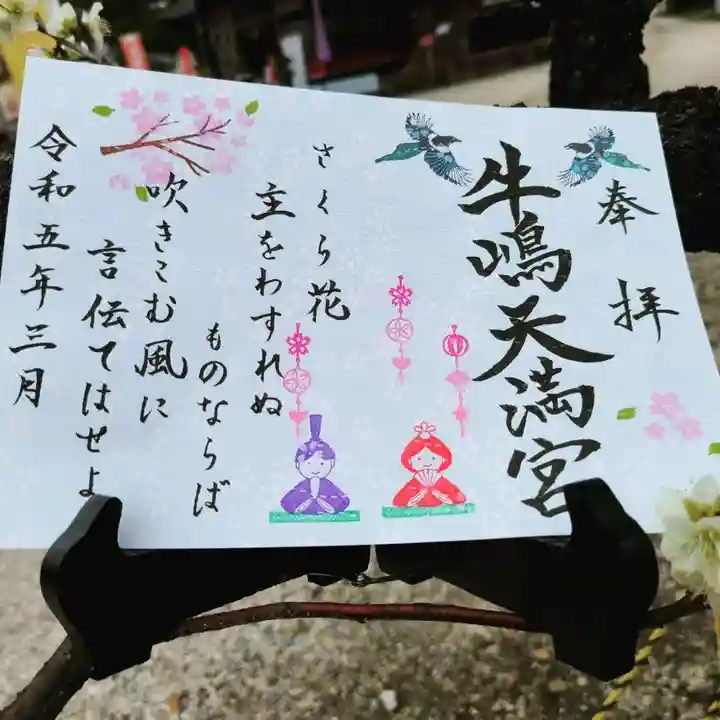 奉拝
牛嶋天満宮
さくら花
主をわすれぬ
ものならば
吹きこむ風に
言伝てはせよ
令和五年三月